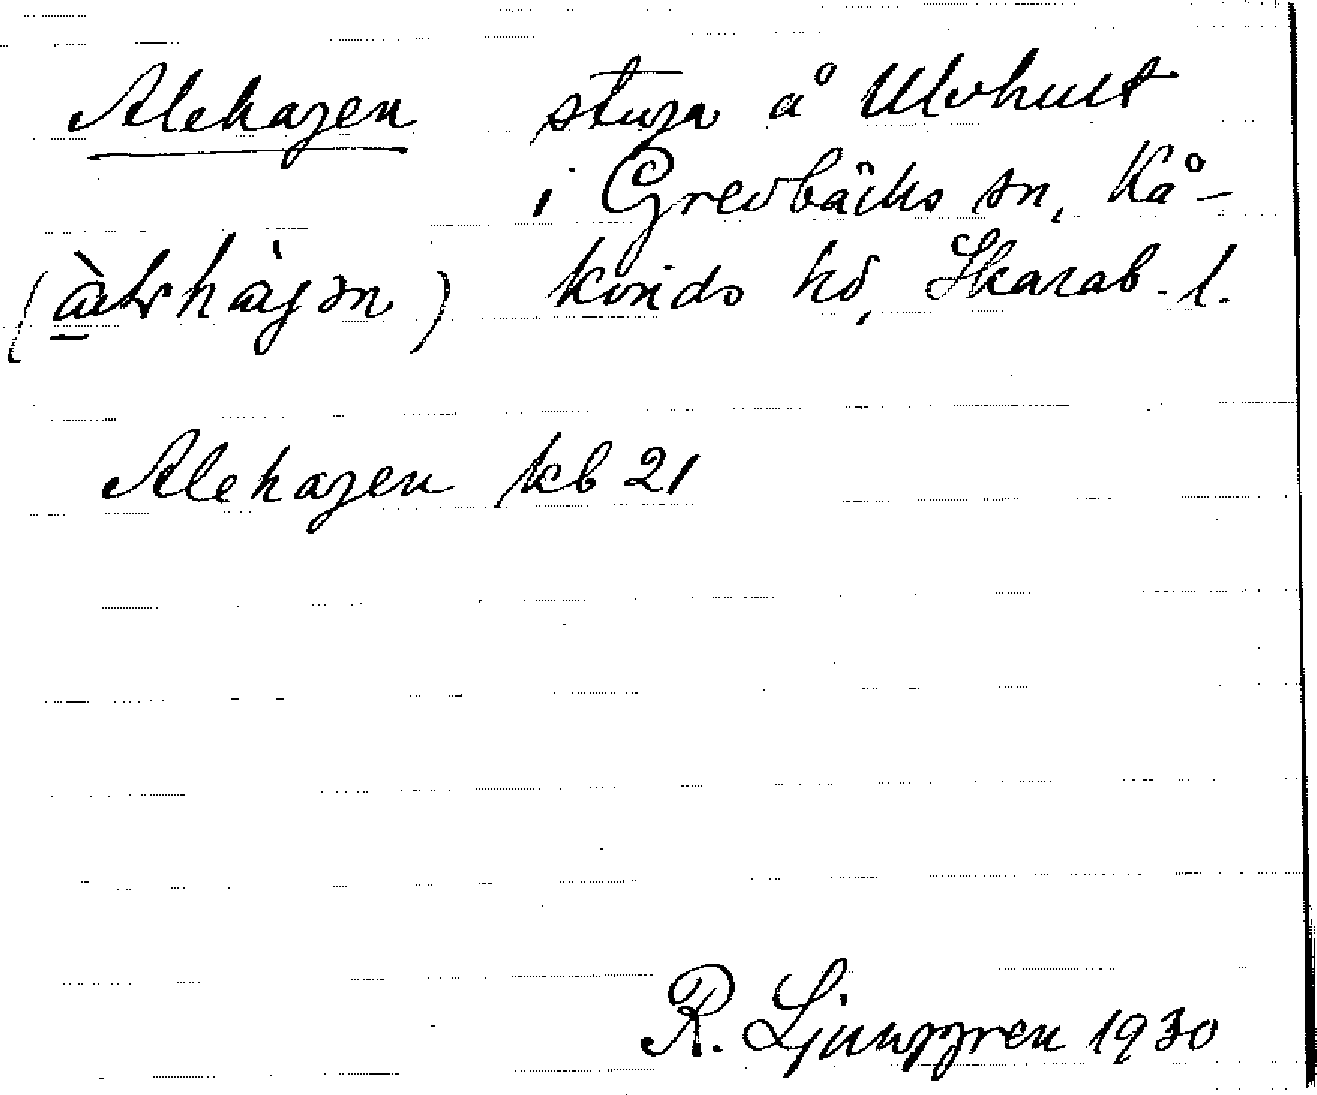 Alehagen stuga å Ulvhult
i Grevbäcks sn, Kå-
kinds hd, Skarab. l.
Alehagen kb 21
R. Ljunggren 1930